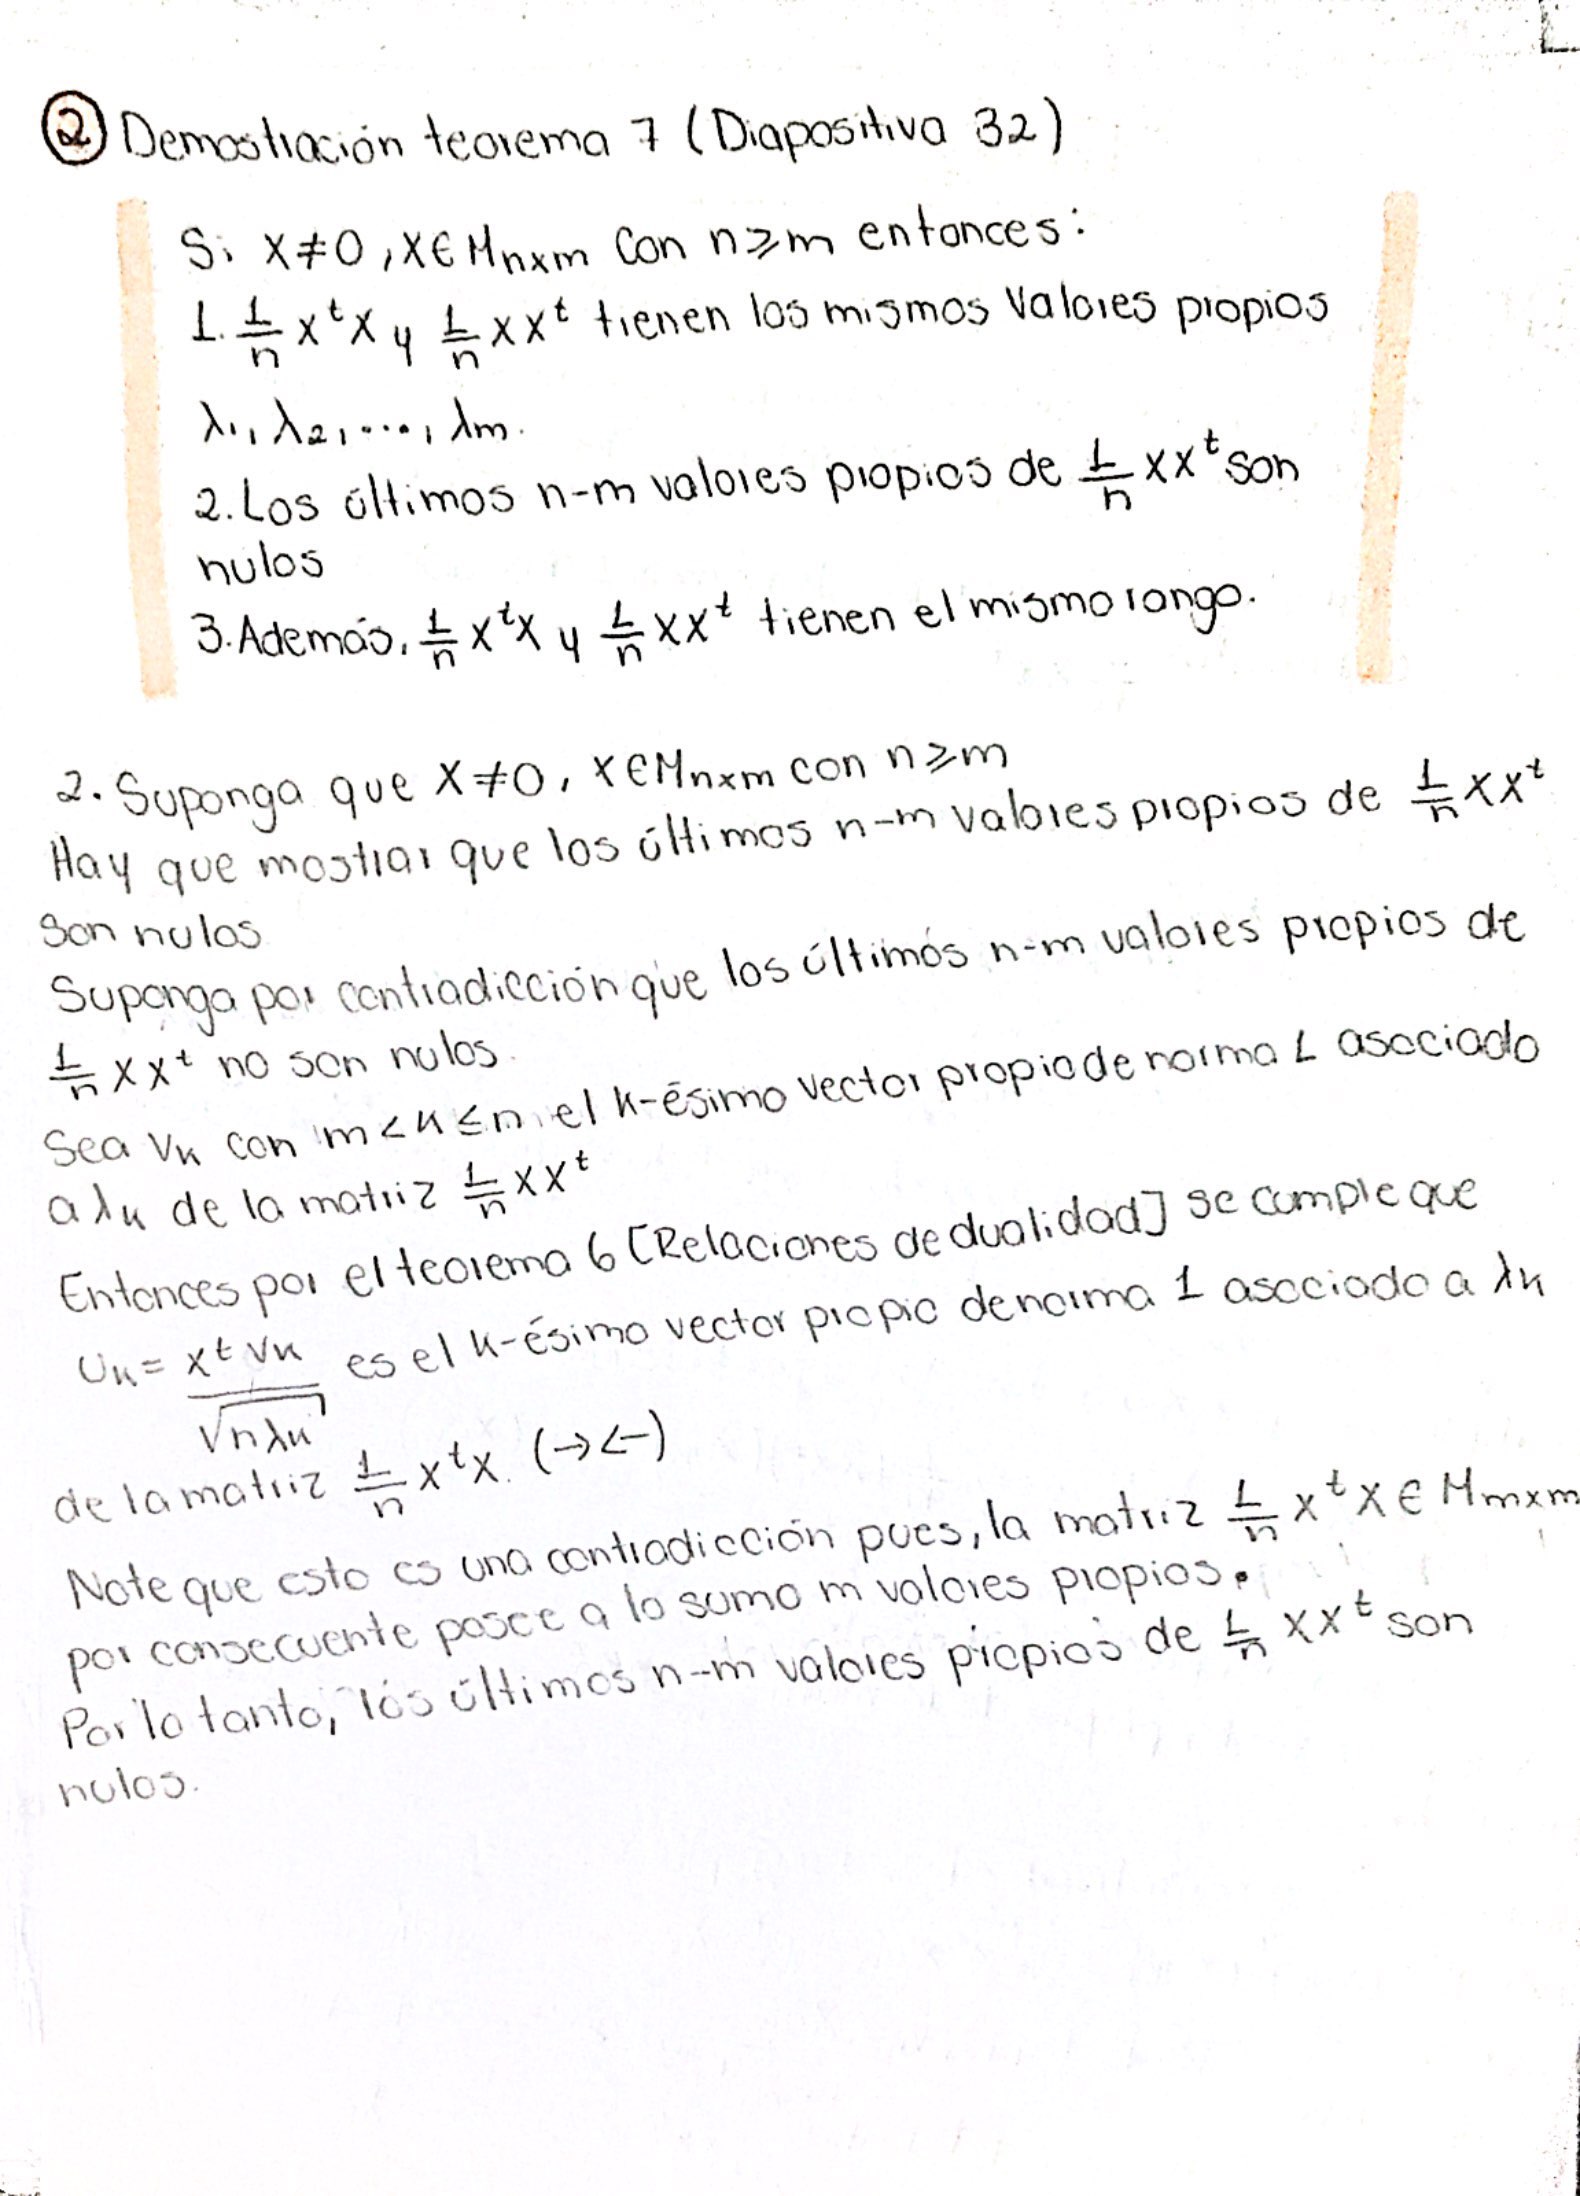 ② Demostración teorema 7 (Diapositiva 32)
Si X≠0, X∈Mnxm Con n≥m entonces:
1. 1/n XᵗX y 1/n XXᵗ tienen los mismos Valores propios
λ₁, λ₂, ..., λm.
2. Los últimos n-m valores propios de 1/n XXᵗ son
nulos
3. Además, 1/n XᵗX y 1/n XXᵗ tienen el mismo rango.
2. Suponga que X≠0, X∈Mnxm con n≥m
Hay que mostrar que los últimos n-m valores propios de 1/n XXᵗ
son nulos
Suponga por contradicción que los últimos n-m valores propios de
1/n XXᵗ no son nulos.
Sea Vk con m<k≤n el k-ésimo vector propio de norma 1 asociado
a λk de la matriz 1/n XXᵗ
Entonces por el teorema 6 [Relaciones de dualidad] se cumple que
Uk = XᵗVk / √nλk es el k-ésimo vector propio de norma 1 asociado a λk
de la matriz 1/n XᵗX. (→←)
Note que esto es una contradicción pues, la matriz 1/n XᵗX ∈ Mmxm
por consecuente posee a lo sumo m valores propios.
Por lo tanto, los últimos n-m valores propios de 1/n XXᵗ son
nulos.